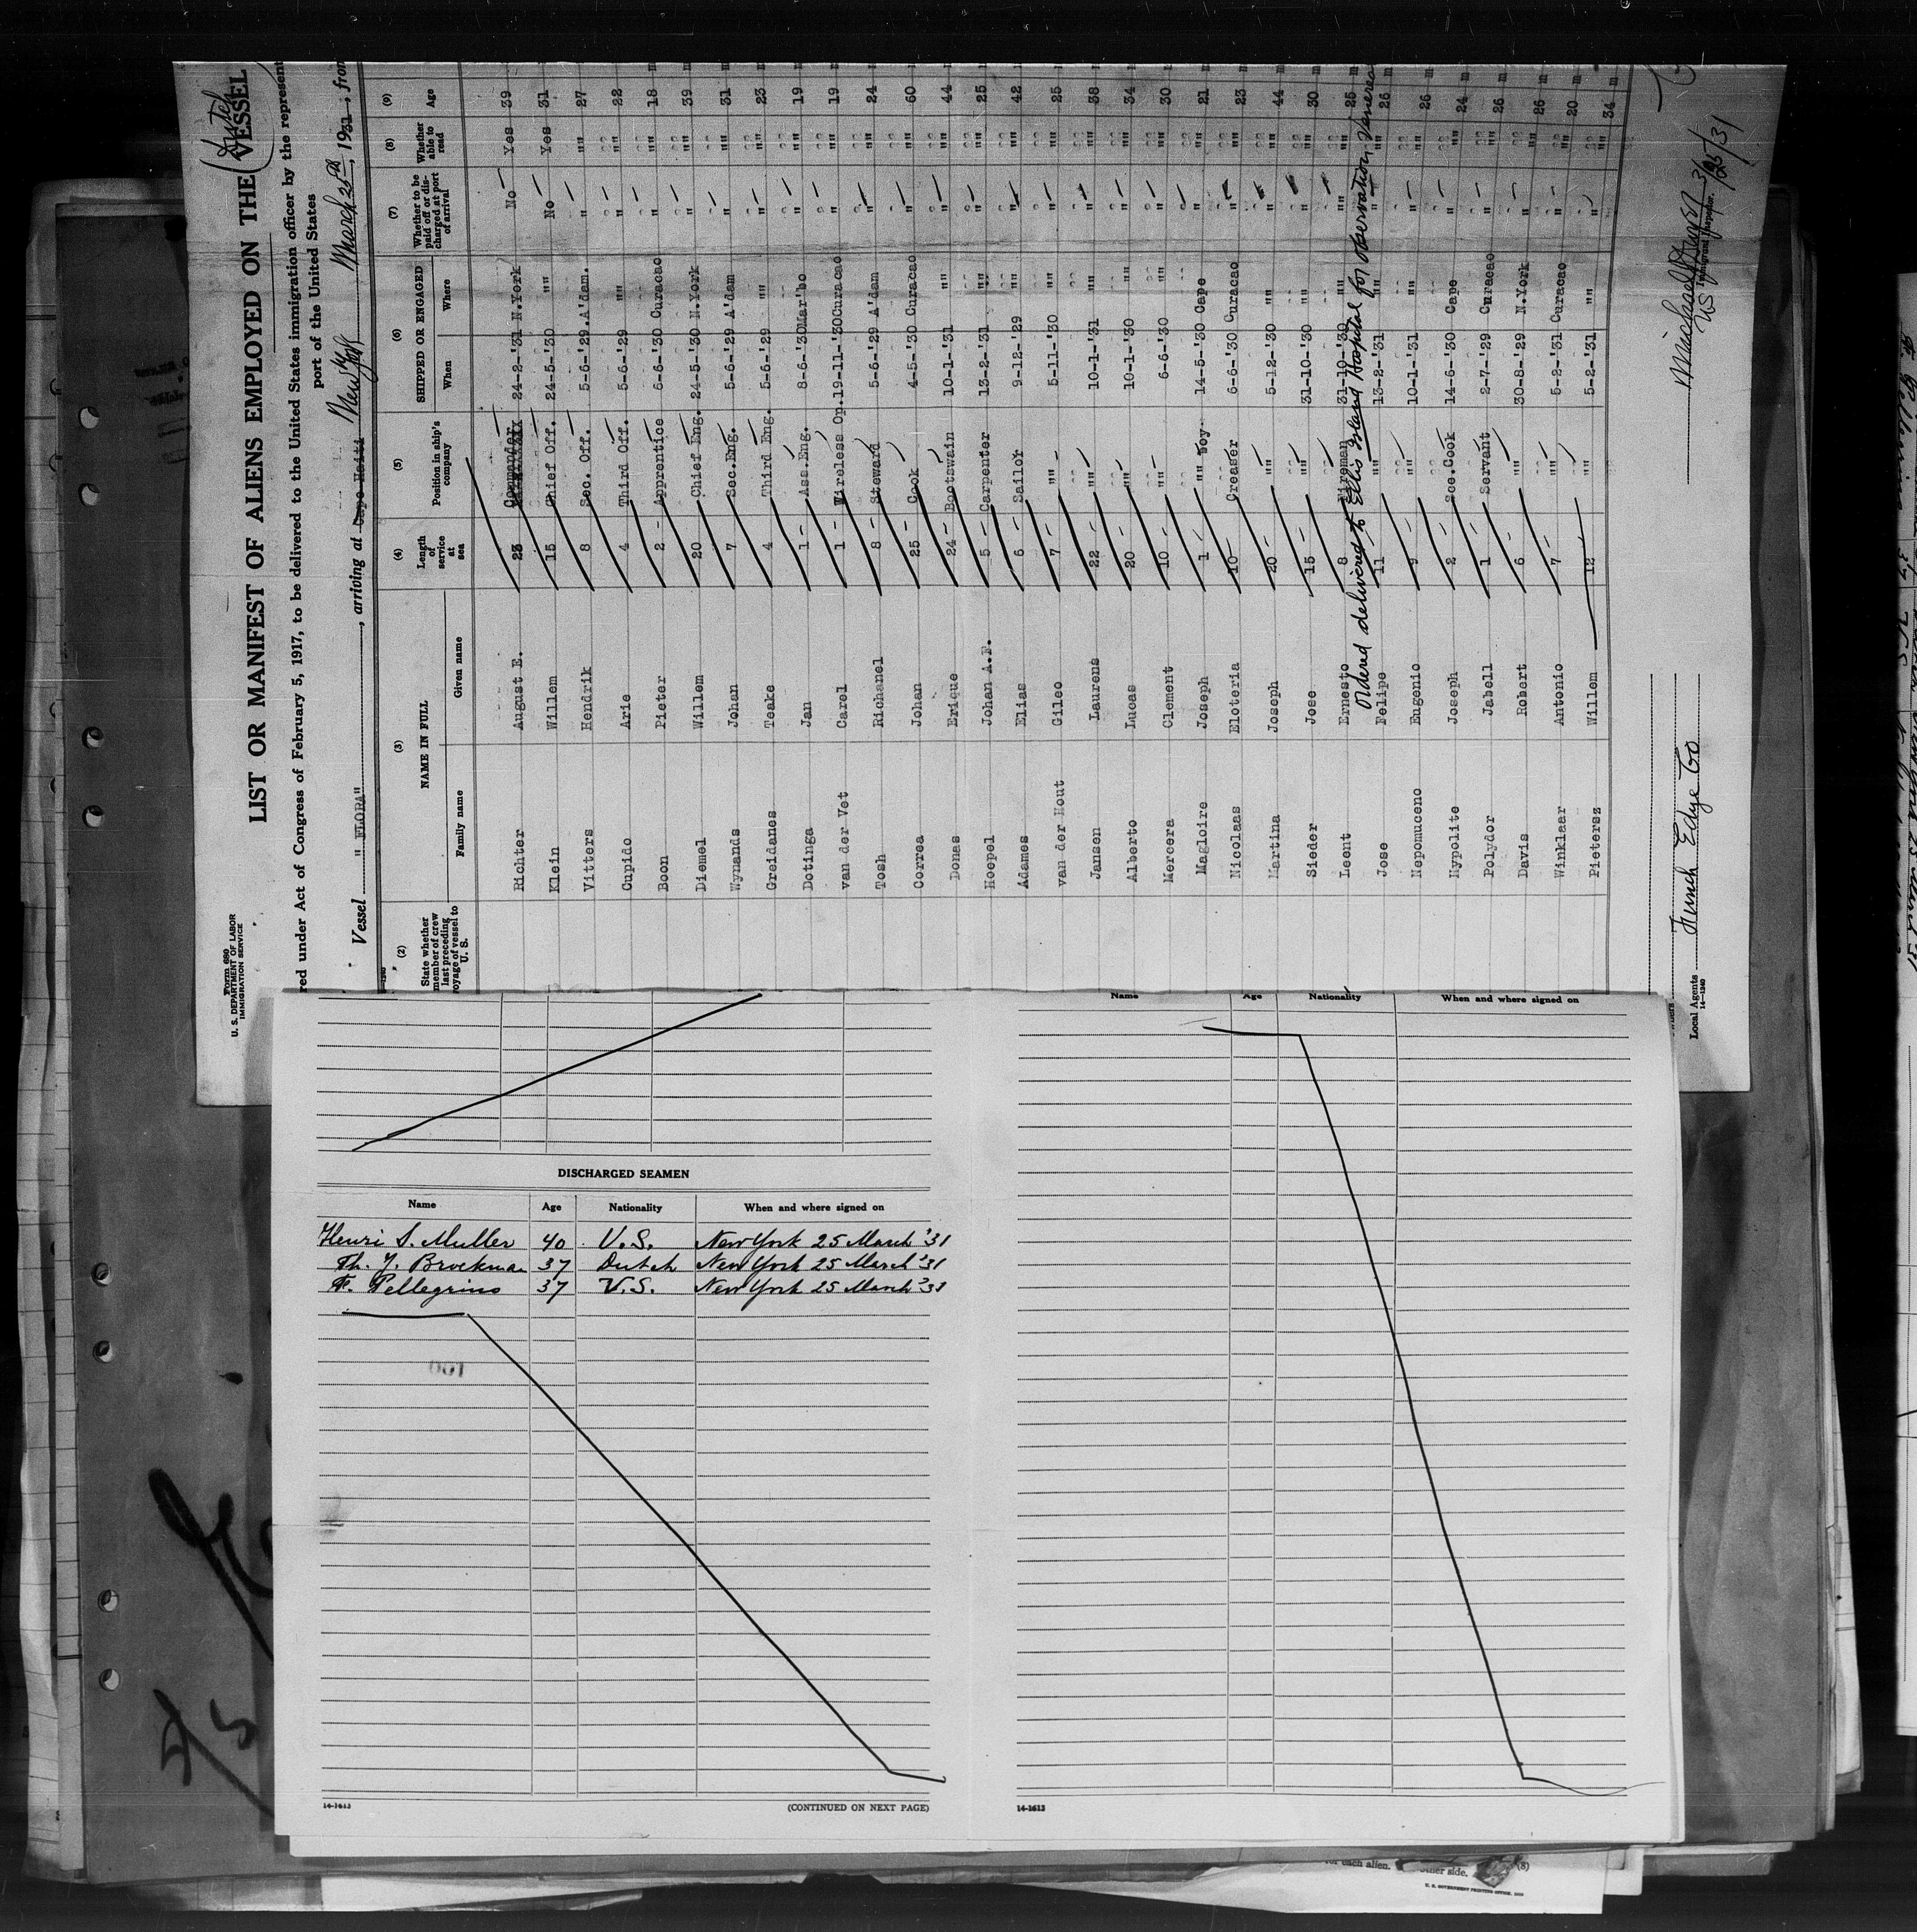 Form 680
U. S. DEPARTMENT OF LABOR
IMMIGRATION SERVICE
(Dutch
LIST OR MANIFEST OF ALIENS EMPLOYED ON THE VESSEL
red under Act of Congress of February 5, 1917, to be delivered to the United States immigration officer by the represent
port of the United States
Vessel "FLORA", arriving at Cape Haiti New York March 25th, 1931, from
(2) (3) (4) (5) (6) (7) (8) (9)
State whether member of crew last preceding voyage of vessel to U. S.
NAME IN FULL
Family name Given name
Length of service at sea
Position in ship's company
SHIPPED OR ENGAGED
When Where
Whether to be paid off or discharged at port of arrival
Whether able to read
Age
Richter August E. 23 Commander 24-2-'31 N.York No Yes 39
Klein Willem 15 Chief Off. 24-5-'30 "" No Yes 31
Vitters Hendrik 8 Sec. Off. 5-6-'29. A'dam. " "" 27
Cupido Arie 4 Third Off. 5-6-'29 "" " "" 22
Boon Pieter 2 Apprentice 6-6-'30 Curacao " "" 18
Diemel Willem 20 Chief Eng. 24-5-'30 N.York " "" 39
Wynands Johan 7 Sec.Eng. 5-6-'29 A'dam " "" 31
Greidanes Teake 4 Third Eng. 5-6-'29 "" " "" 23
Dotinga Jan 1 Ass.Eng. 8-6-'30 Mar'bo " "" 19
van der Vet Carel 1 Wireless Op. 19-11-'30 Curacao " "" 19
Tosh Richanel 8 Steward 5-6-'29 A'dam " "" 24
Correa Johan 25 Cook 4-5-'30 Curacao " "" 60
Donas Erique 24 Bootswain 10-1-'31 "" " "" 44
Hoepel Johan A.F. 5 Carpenter 13-2-'31 "" " "" 25
Adames Elias 6 Sailor 9-12-'29 "" " "" 42
van der Hout Gileo 7 "" 5-11-'30 "" " "" 25
Jansen Laurens 22 "" 10-1-'31 "" " "" 38
Alberto Lucas 20 "" 10-1-'30 "" " "" 34
Mercera Clement 10 "" 6-6-'30 "" " "" 30
Magloire Joseph 1 "" boy. 14-5-'30 Cape " "" 21
Nicolaas Eloteria 10 Greaser 6-6-'30 Curacao " "" 23
Martina Joseph 20 "" 5-12-'30 "" " "" 44
Sieder Jose 15 "" 31-10-'30 "" " "" 30
Leent Ernesto 8 Fireman 31-10-'30 "" " "" 25
Ordered delivered to Ellis Island Hospital for observation Venerea
Jose Felipe 11 "" 13-2-'31 "" " "" 26
Nepomuceno Eugenio 9 "" 10-1-'31 "" " "" 26
Hypolite Joseph 2 Sce.Cook 14-6-'30 Cape " "" 24
Polydor Jabell 1 Servant 2-7-'29 Curacao " "" 26
Davis Robert 6 "" 30-8-'29 N.York " "" 26
Winklaar Antonio 7 "" 5-2-'31 Curacao " "" 20
Pietersz Willem 12 "" 5-2-'31 "" " "" 34
Local Agents Funch Edye Co
14-1240
3/25/31
Immigrant Inspector.
DISCHARGED SEAMEN
Name Age Nationality When and where signed on
Henri S. Muller 40 U.S. New York 25 March '31
Th. J. Broekman 37 Dutch New York 25 March '31
F. Pellegrino 37 U.S. New York 25 March '31
001
14-1613
(CONTINUED ON NEXT PAGE)
Name Age Nationality When and where signed on
14-1613
for each alien. other side. (8)
U. S. GOVERNMENT PRINTING OFFICE